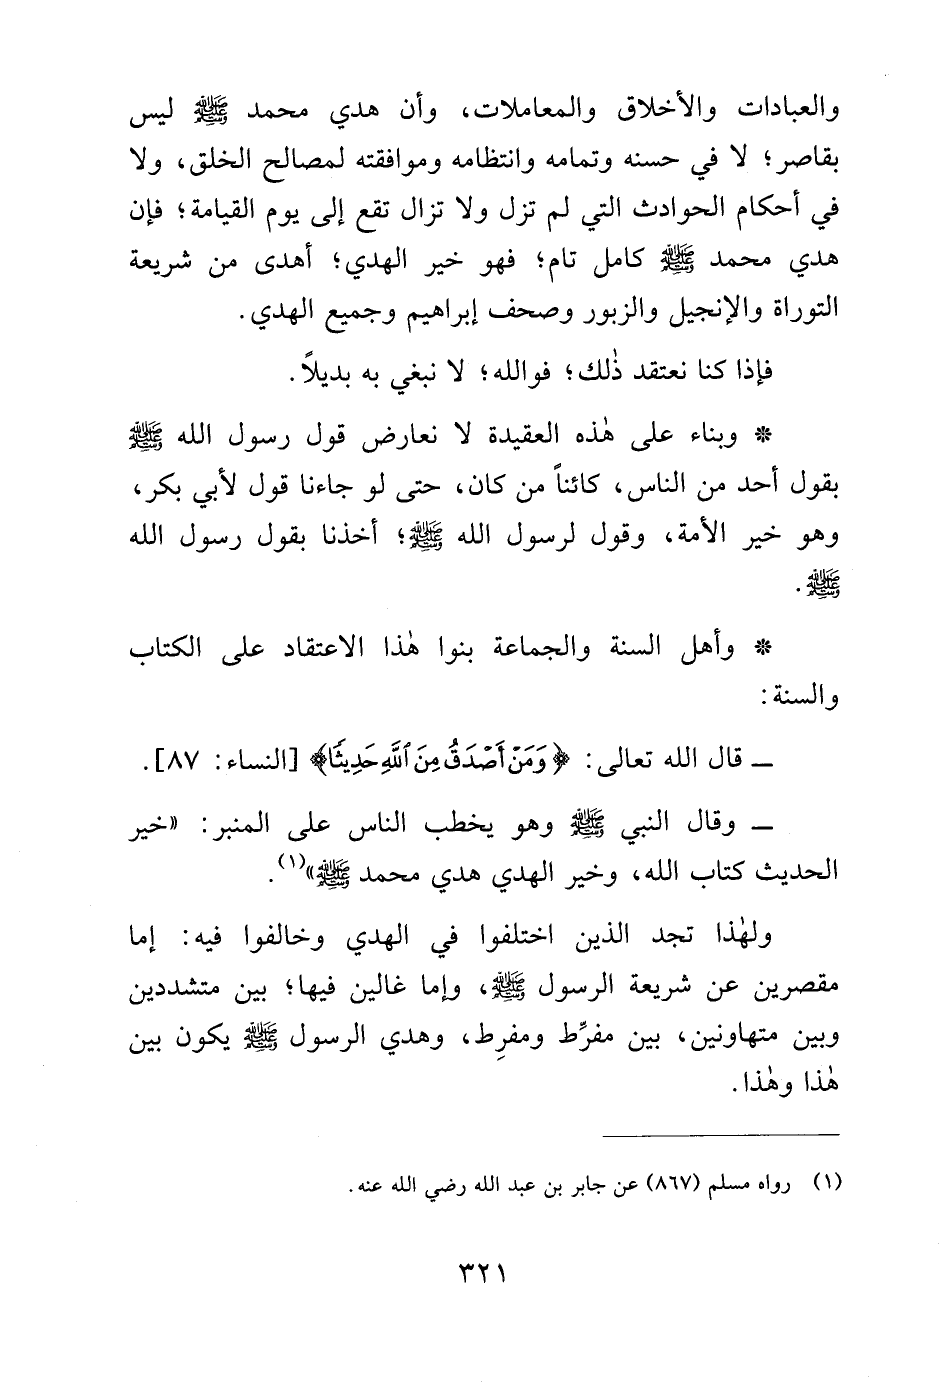 والعبادات والأخلاق والمعاملات، وأن هدي محمد ﷺ ليس
بقاصر؛ لا في حسنه وتمامه وانتظامه وموافقته لمصالح الخلق، ولا
في أحكام الحوادث التي لم تزل ولا تزال تقع إلى يوم القيامة؛ فإن
هدي محمد ﷺ كامل تام؛ فهو خير الهدي؛ أهدى من شريعة
التوراة والإنجيل والزبور وصحف إبراهيم وجميع الهدي.
فإذا كنا نعتقد ذٰلك؛ فوالله؛ لا نبغي به بديلاً.
* وبناء على هٰذه العقيدة لا نعارض قول رسول الله ﷺ
بقول أحد من الناس، كائناً من كان، حتى لو جاءنا قول لأبي بكر،
وهو خير الأمة، وقول لرسول الله ﷺ؛ أخذنا بقول رسول الله
ﷺ.
* وأهل السنة والجماعة بنوا هٰذا الاعتقاد على الكتاب
والسنة:
ـ قال الله تعالى: ﴿وَمَنْ أَصْدَقُ مِنَ ٱللَّهِ حَدِيثًا﴾ [النساء: ٨٧].
ـ وقال النبي ﷺ وهو يخطب الناس على المنبر: «خير
الحديث كتاب الله، وخير الهدي هدي محمد ﷺ»(١).
ولهٰذا تجد الذين اختلفوا في الهدي وخالفوا فيه: إما
مقصرين عن شريعة الرسول ﷺ، وإما غالين فيها؛ بين متشددين
وبين متهاونين، بين مفرِّط ومفرِط، وهدي الرسول ﷺ يكون بين
هٰذا وهٰذا.
(١) رواه مسلم (٨٦٧) عن جابر بن عبد الله رضي الله عنه.
٣٢١